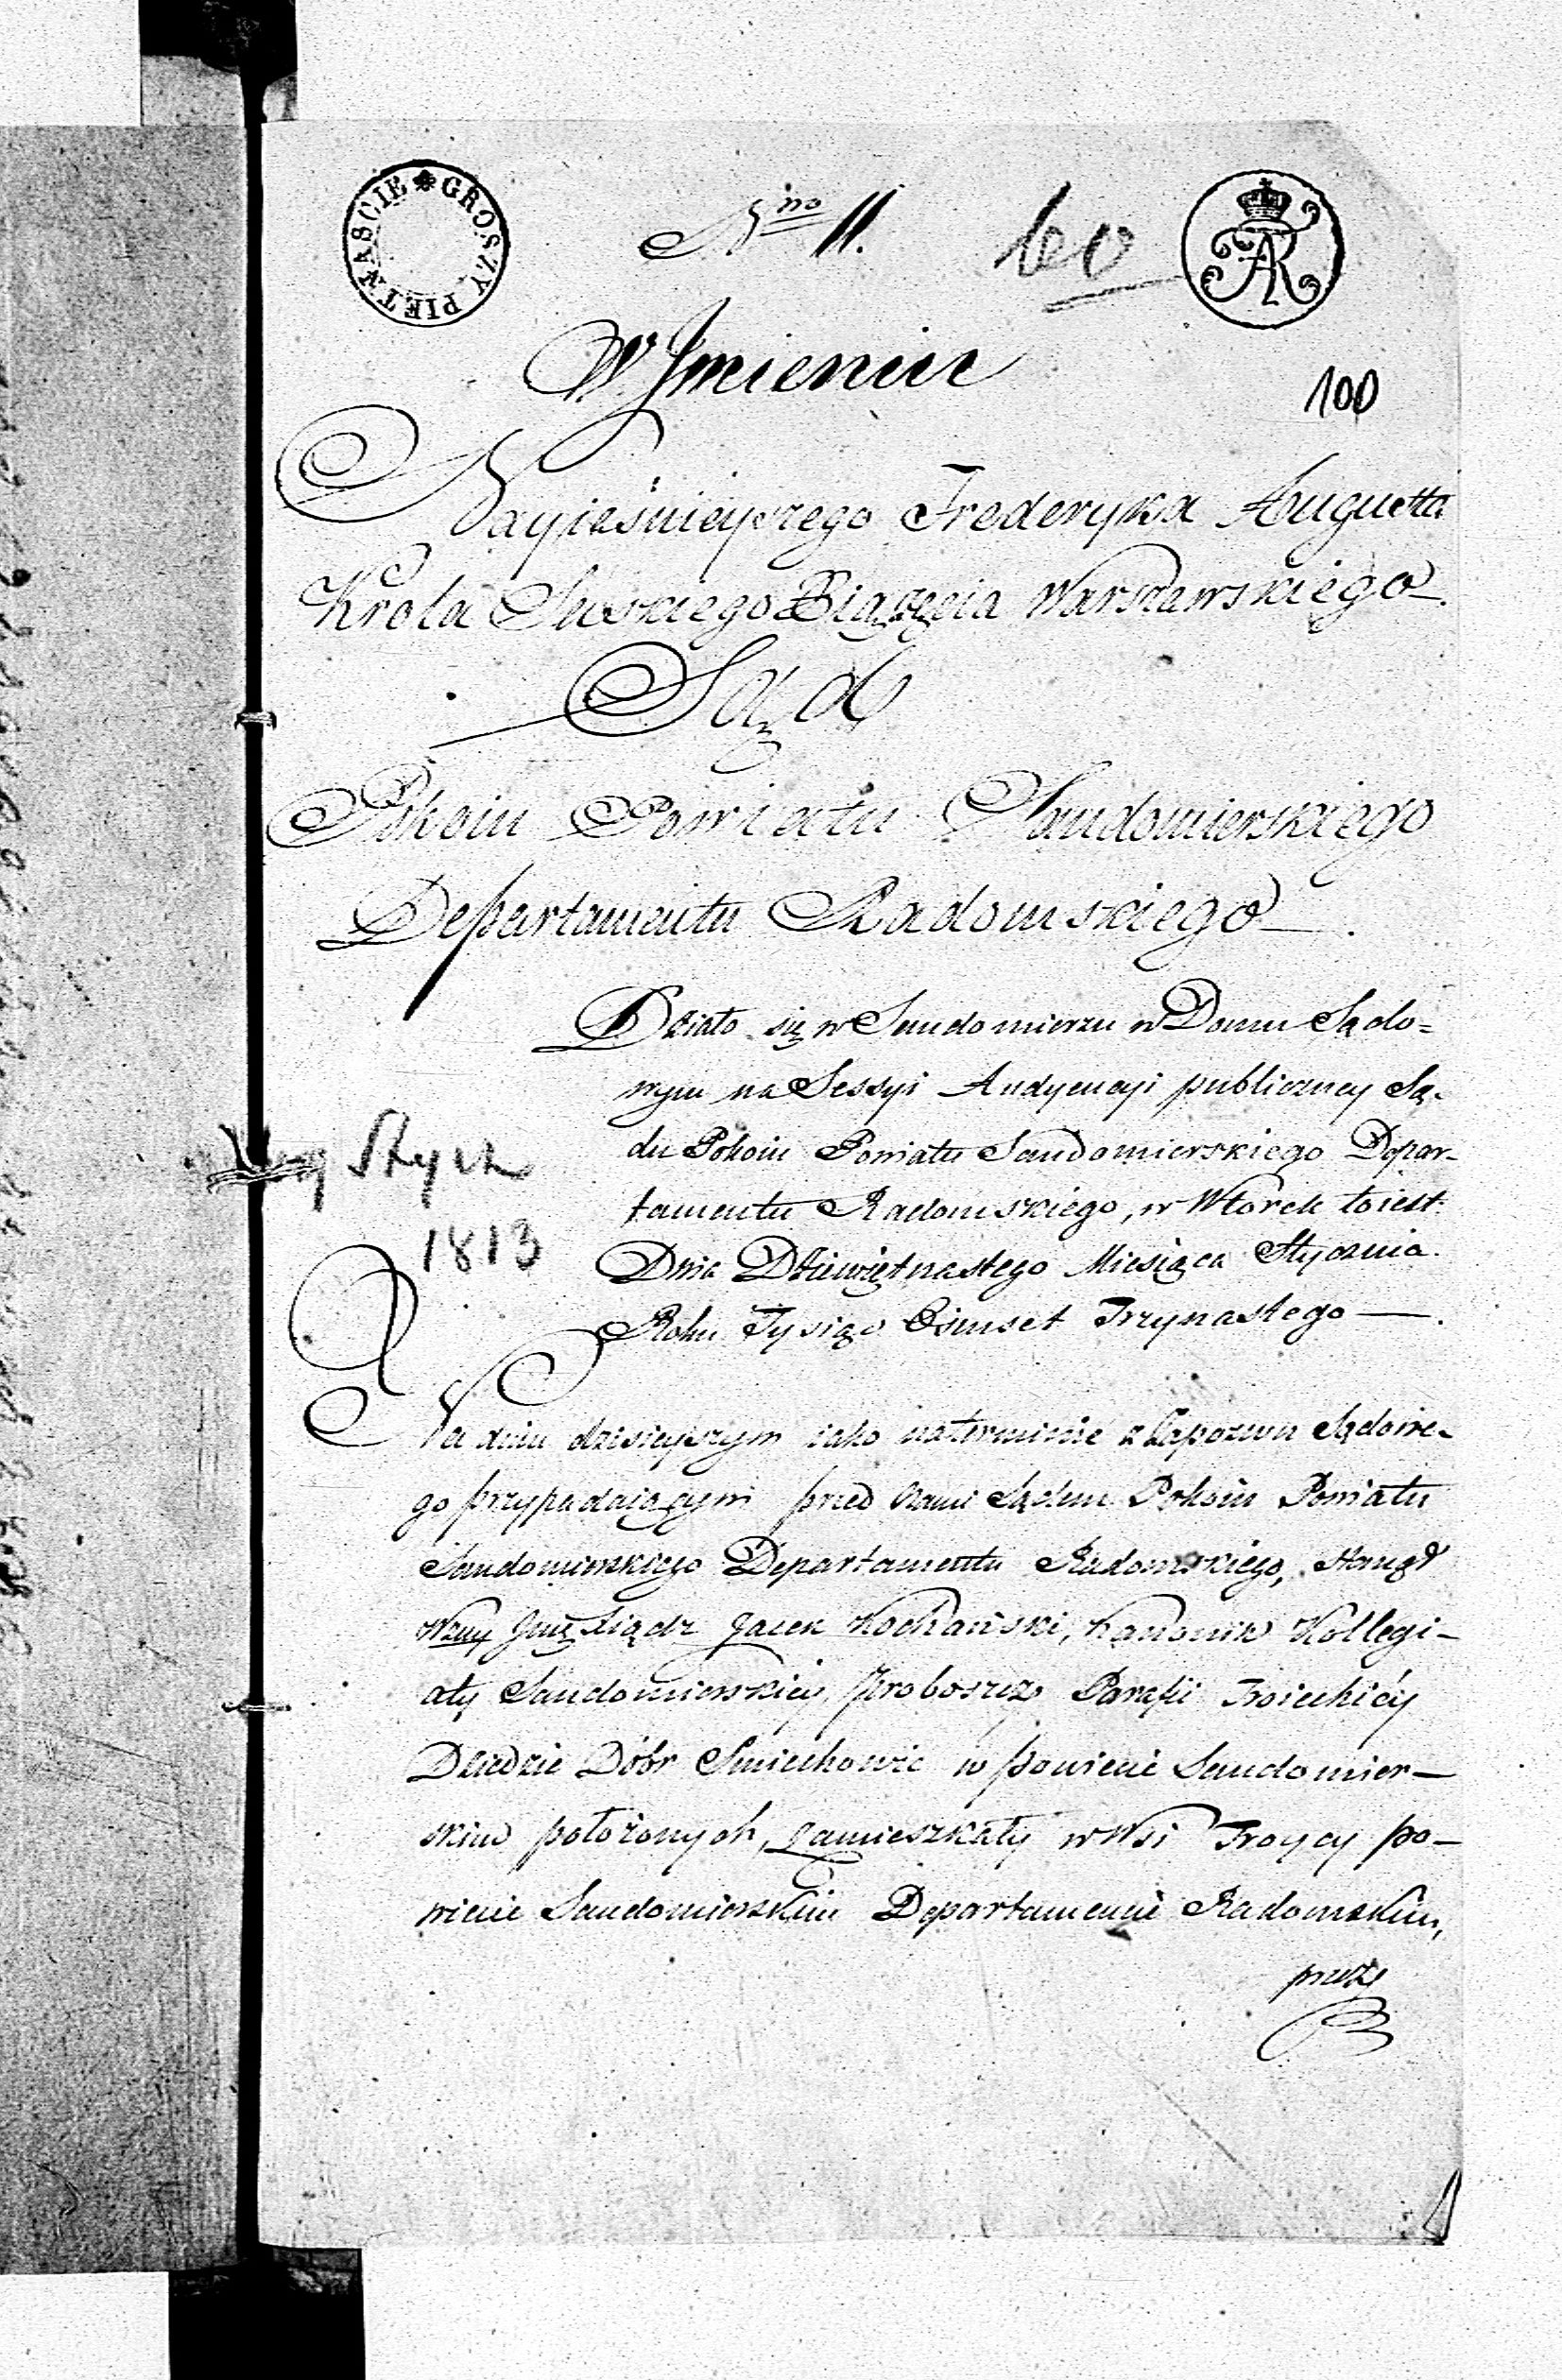 GROSZY PIETNASCIE
Nro 11.
100
W Jmieniu
Nayiaśnieyszego Fryderyka Augusta
Króla Saskiego Xiążęcia Warszawskiego
Sąd
Pokoiu Powiatu Sandomierskiego
Departamentu Radomskiego
Działo się w Sandomierzu w Domu Sądo=
wym na Sessyi Audyencyi publiczney Są-
du Pokoiu Powiatu Sandomierskiego Depar-
tamentu Radomskiego, w Wtorek toiest
Dnia Dziewiętnastego Miesiąca Stycznia
Roku Tysiąc Osmset Trzynastego —
Stycz
1813
Na dniu dzisieyszym iako na terminie z Zapozwu Sądowe-
go przypadaiącym przed Nami Sądem Pokoiu Powiatu
Sandomierskiego Departamentu Radomskiego, Stanął
Wzny Jmć Xiądz Jacek Kochański, Kanonik Kollegi-
aty Sandomierskiey Proboszcz Parafii Troieckiéy
Dziedzic Dóbr Smiechowic w powiecie Sandomier-
skim położonych, zamieszkały w Wsi Troycy po-
wiecie Sandomierskim Departamencie Radomskim,
przez